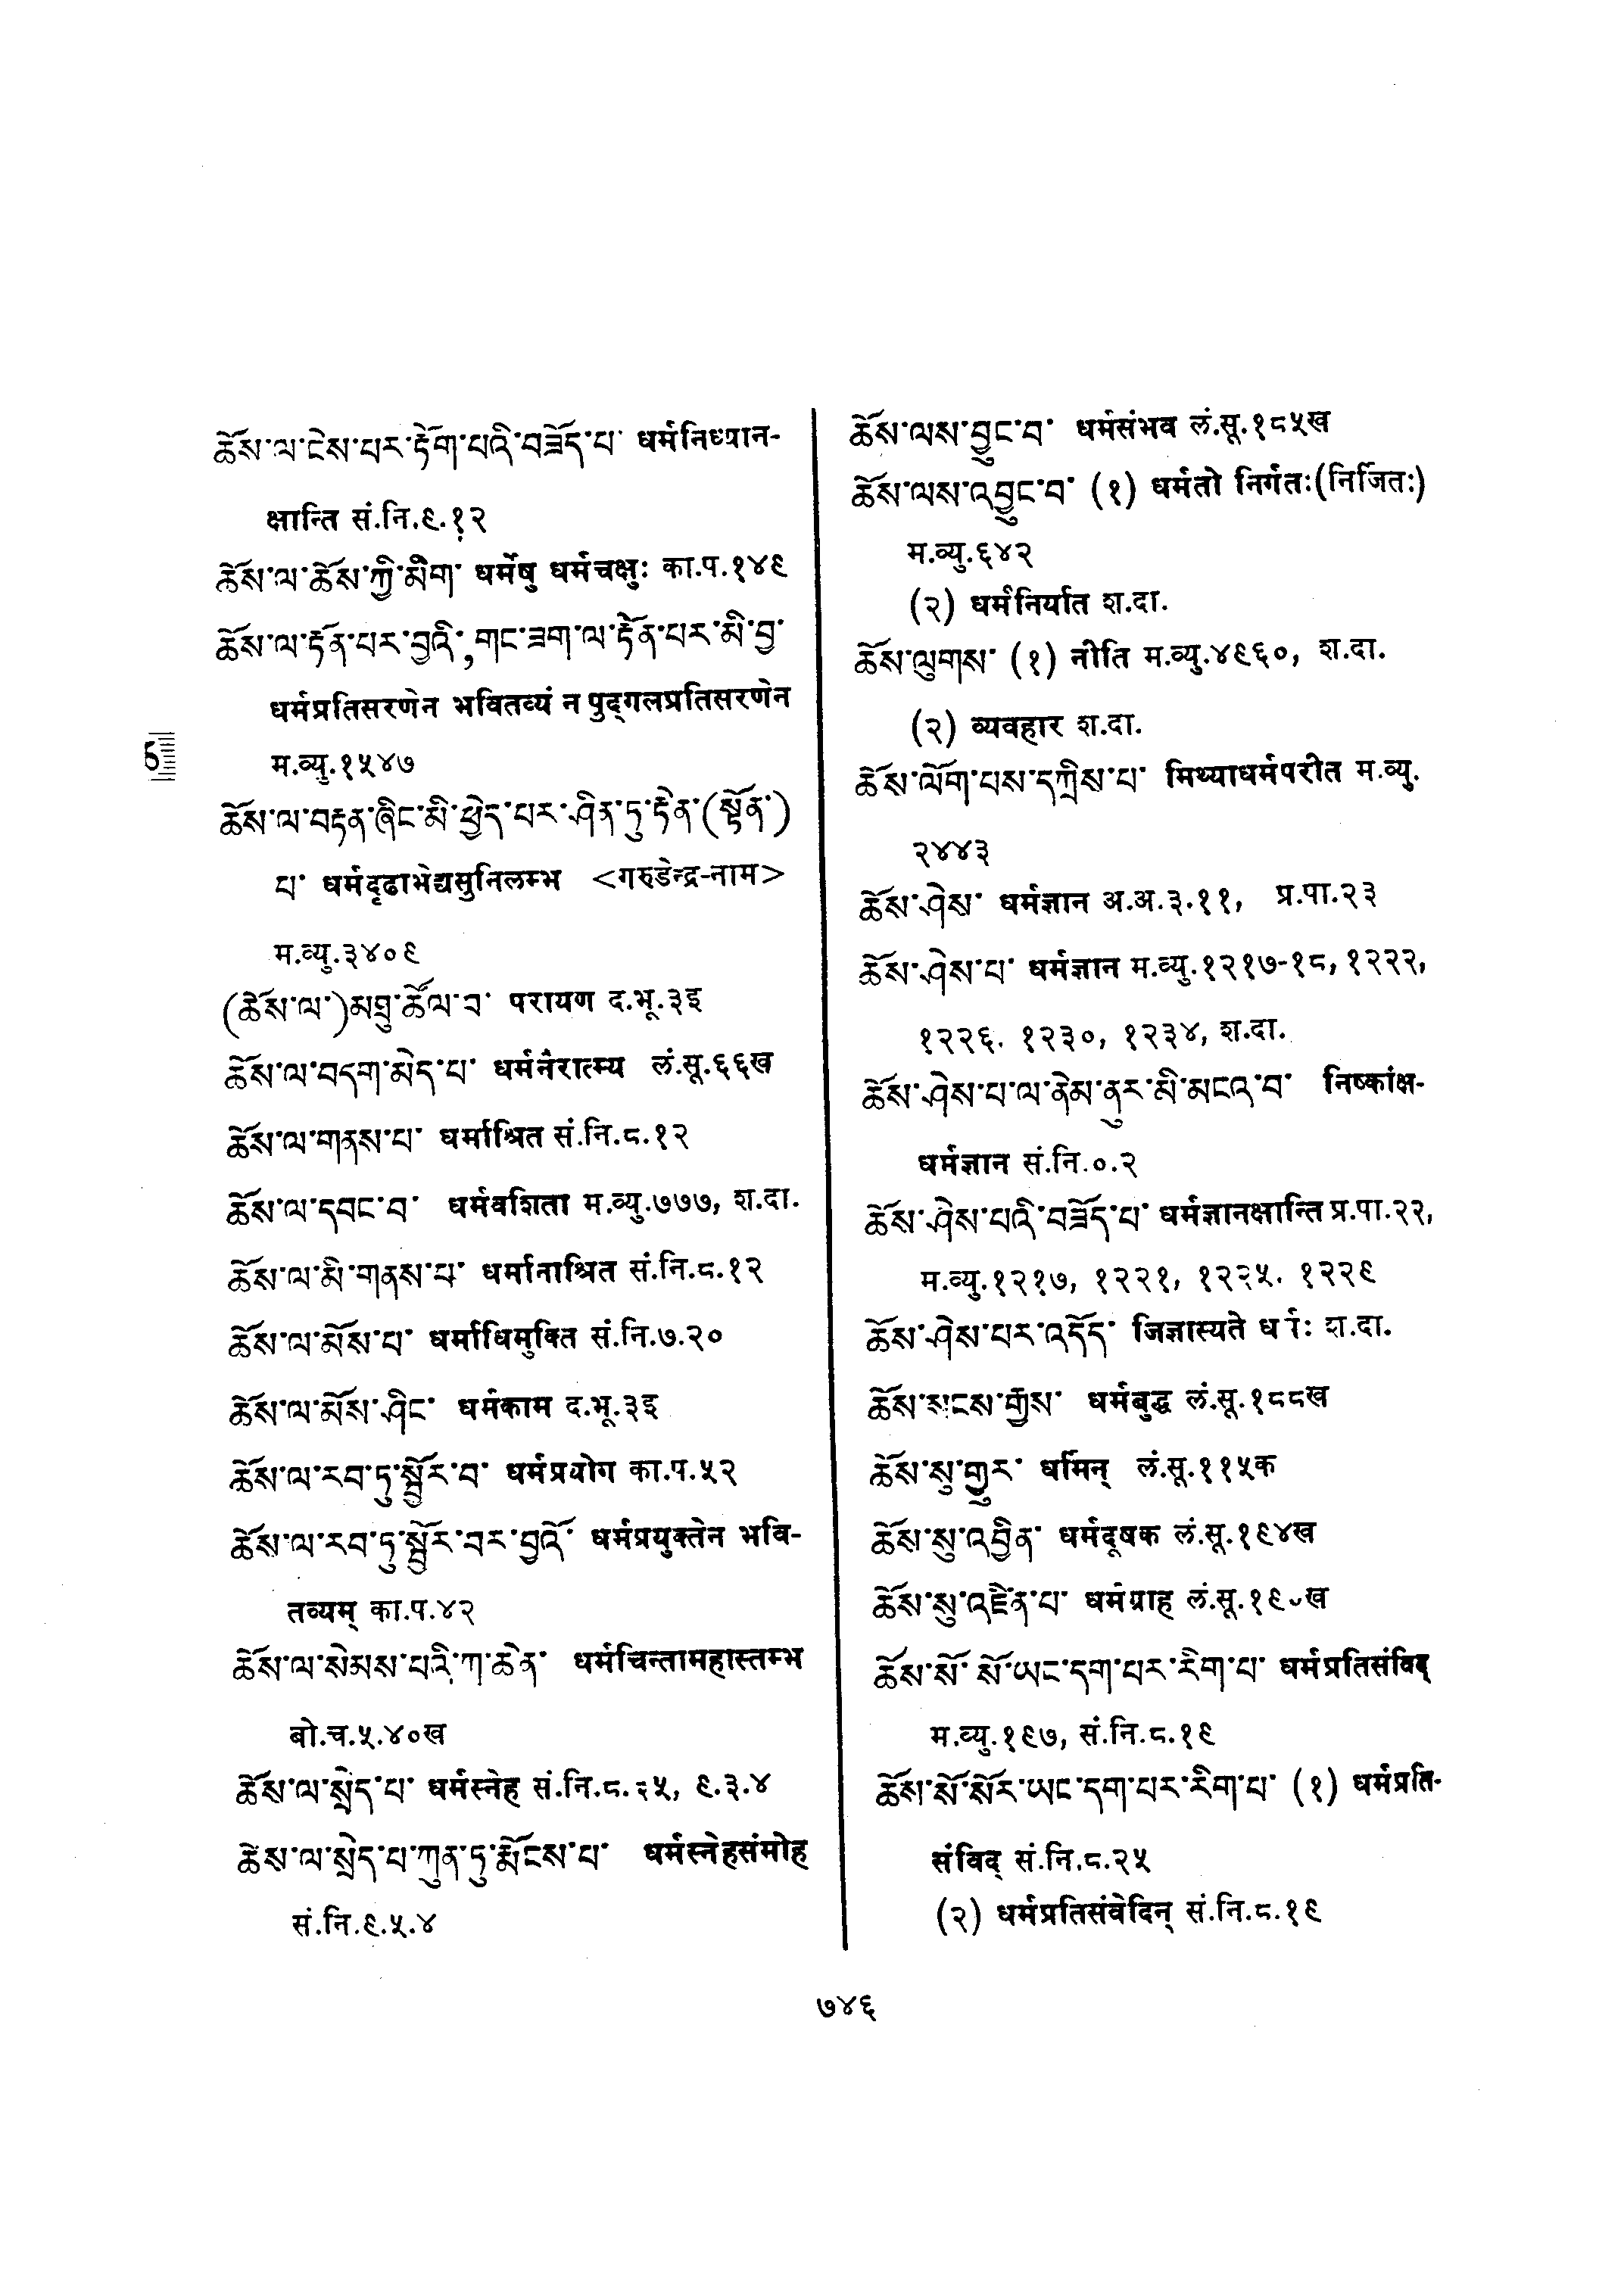 ཆོས་ལ་ངེས་པར་རྟོག་པའི་བཟོད་པ་ धर्मनिध्यान-
क्षान्ति सं.नि.९.१२
ཆོས་ལ་ཆོས་ཀྱི་མིག་ धर्मेषु धर्मचक्षुः का.प.१४९
ཆོས་ལ་རྟོན་པར་བྱའི་,གང་ཟག་ལ་རྟོན་པར་མི་བྱ་
धर्मप्रतिसरणेन भवितव्यं न पुद्गलप्रतिसरणेन
म.व्यु.१५४७
ཆོས་ལ་བརྟན་ཞིང་མི་ཕྱེད་པར་ཤིན་ཏུ་རྟེན་(སྟོན་)
པ་ धर्मदृढाभेद्यसुनिलम्भ <गरुडेन्द्र-नाम>
म.व्यु.३४०९
(ཆོས་ལ་)མཐུ་ཚོལ་བ་ परायण द.भू.३इ
ཆོས་ལ་བདག་མེད་པ་ धर्मनैरात्म्य लं.सू.६६ख
ཆོས་ལ་གནས་པ་ धर्माश्रित सं.नि.८.१२
ཆོས་ལ་དབང་བ་ धर्मवशिता म.व्यु.७७७, श.दा.
ཆོས་ལ་མི་གནས་པ་ धर्मानाश्रित सं.नि.८.१२
ཆོས་ལ་མོས་པ་ धर्माधिमुक्ति सं.नि.७.२०
ཆོས་ལ་མོས་ཤིང་ धर्मकाम द.भू.३इ
ཆོས་ལ་རབ་ཏུ་སྦྱོར་བ་ धर्मप्रयोग का.प.५२
ཆོས་ལ་རབ་ཏུ་སྦྱོར་བར་བྱའོ་ धर्मप्रयुक्तेन भवि-
तव्यम् का.प.४२
ཆོས་ལ་སེམས་པའི་ཀ་ཆེན་ धर्मचिन्तामहास्तम्भ
बो.च.५.४०ख
ཆོས་ལ་སྲེད་པ་ धर्मस्नेह सं.नि.८.२५, ९.३.४
ཆེས་ལ་སྲེད་པ་ཀུན་ཏུ་རྨོངས་པ་ धर्मस्नेहसंमोह
सं.नि.९.५.४
ཆོས་ལས་བྱུང་བ་ धर्मसंभव लं.सू.१८५ख
ཆོས་ལས་འབྱུང་བ་ (१) धर्मतो निर्गतः(निर्जितः)
म.व्यु.६४२
(२) धर्मनिर्यात श.दा.
ཆོས་ལུགས་ (१) नीति म.व्यु.४९६०, श.दा.
(२) व्यवहार श.दा.
ཆོས་ལོག་པས་དཀྲིས་པ་ मिथ्याधर्मपरीत म.व्यु.
२४४३
ཆོས་ཤེས་ धर्मज्ञान अ.अ.३.११, प्र.पा.२३
ཆོས་ཤེས་པ་ धर्मज्ञान म.व्यु.१२१७-१८, १२२२,
१२२६. १२३०, १२३४, श.दा.
ཆོས་ཤེས་པ་ལ་ནེམ་ནུར་མི་མངའ་བ་ निष्कांक्ष-
धर्मज्ञान सं.नि.०.२
ཆོས་ཤེས་པའི་བཟོད་པ་ धर्मज्ञानक्षान्ति प्र.पा.२२,
म.व्यु.१२१७, १२२१, १२२५. १२२९
ཆོས་ཤེས་པར་འདོད་ जिज्ञास्यते श.दा.
ཆོས་སངས་རྒྱས་ धर्मबुद्ध लं.सू.१८८ख
ཆོས་སུ་གྱུར་ धर्मिन् लं.सू.११५क
ཆོས་སུ་འབྱིན་ धर्मदूषक लं.सू.१९४ख
ཆོས་སུ་འཛིན་པ་ धर्मग्राह लं.सू.१९०ख
ཆོས་སོ་ སོ་ཡང་དག་པར་རིག་པ་ धर्मप्रतिसंविद्
म.व्यु.१९७, सं.नि.८.१९
ཆོས་སོ་སོར་ཡང་དག་པར་རིག་པ་ (१) धर्मप्रति-
संविद् सं.नि.८.२५
(२) धर्मप्रतिसंवेदिन् सं.नि.८.१९
७४६